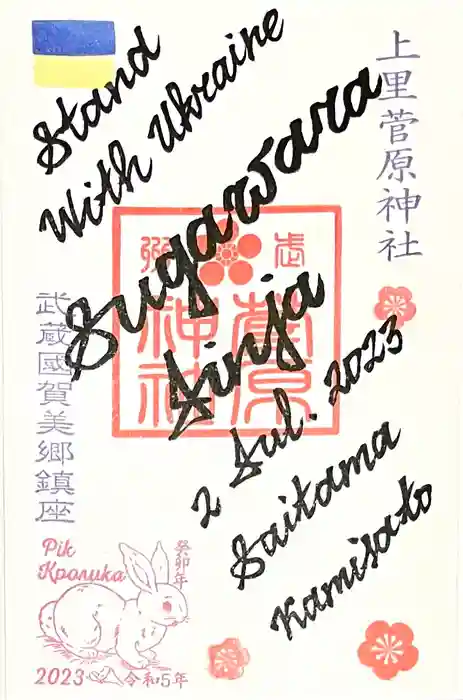 Stand
With Ukraine
Sugawara
Jinja
2 Jul. 2023
Saitama
Kamisato
上里菅原神社
武蔵國賀美郷鎮座
菅原
神社
Рік
Кролика
癸卯年
2023
令和5年